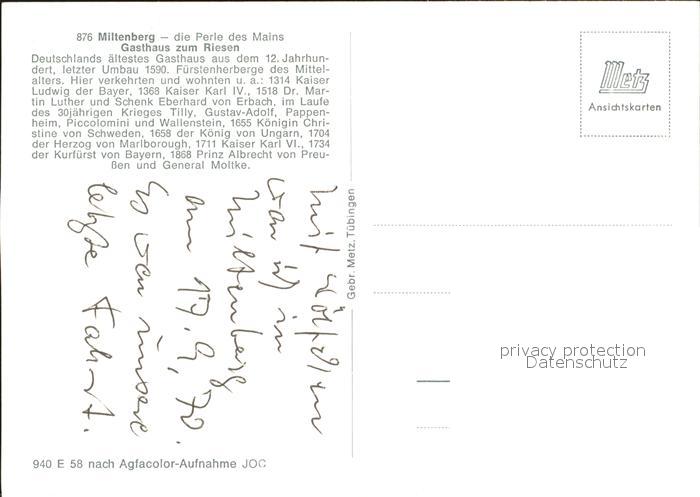 876 Miltenberg — die Perle des Mains
Gasthaus zum Riesen
Deutschlands ältestes Gasthaus aus dem 12. Jahrhun-
dert, letzter Umbau 1590. Fürstenherberge des Mittel-
alters. Hier verkehrten und wohnten u. a.: 1314 Kaiser
Ludwig der Bayer, 1368 Kaiser Karl IV., 1518 Dr. Mar-
tin Luther und Schenk Eberhard von Erbach, im Laufe
des 30jährigen Krieges Tilly, Gustav-Adolf, Pappen-
heim, Piccolomini und Wallenstein, 1655 Königin Chri-
stine von Schweden, 1658 der König von Ungarn, 1704
der Herzog von Marlborough, 1711 Kaiser Karl VI., 1734
der Kurfürst von Bayern, 1868 Prinz Albrecht von Preu-
ßen und General Moltke.
Mit
war ich in
Miltenberg
am 19.9.70.
Es war unsere
letzte Fahrt.
940 E 58 nach Agfacolor-Aufnahme JOC
Gebr. Metz, Tübingen
Metz
Ansichtskarten
privacy protection
Datenschutz